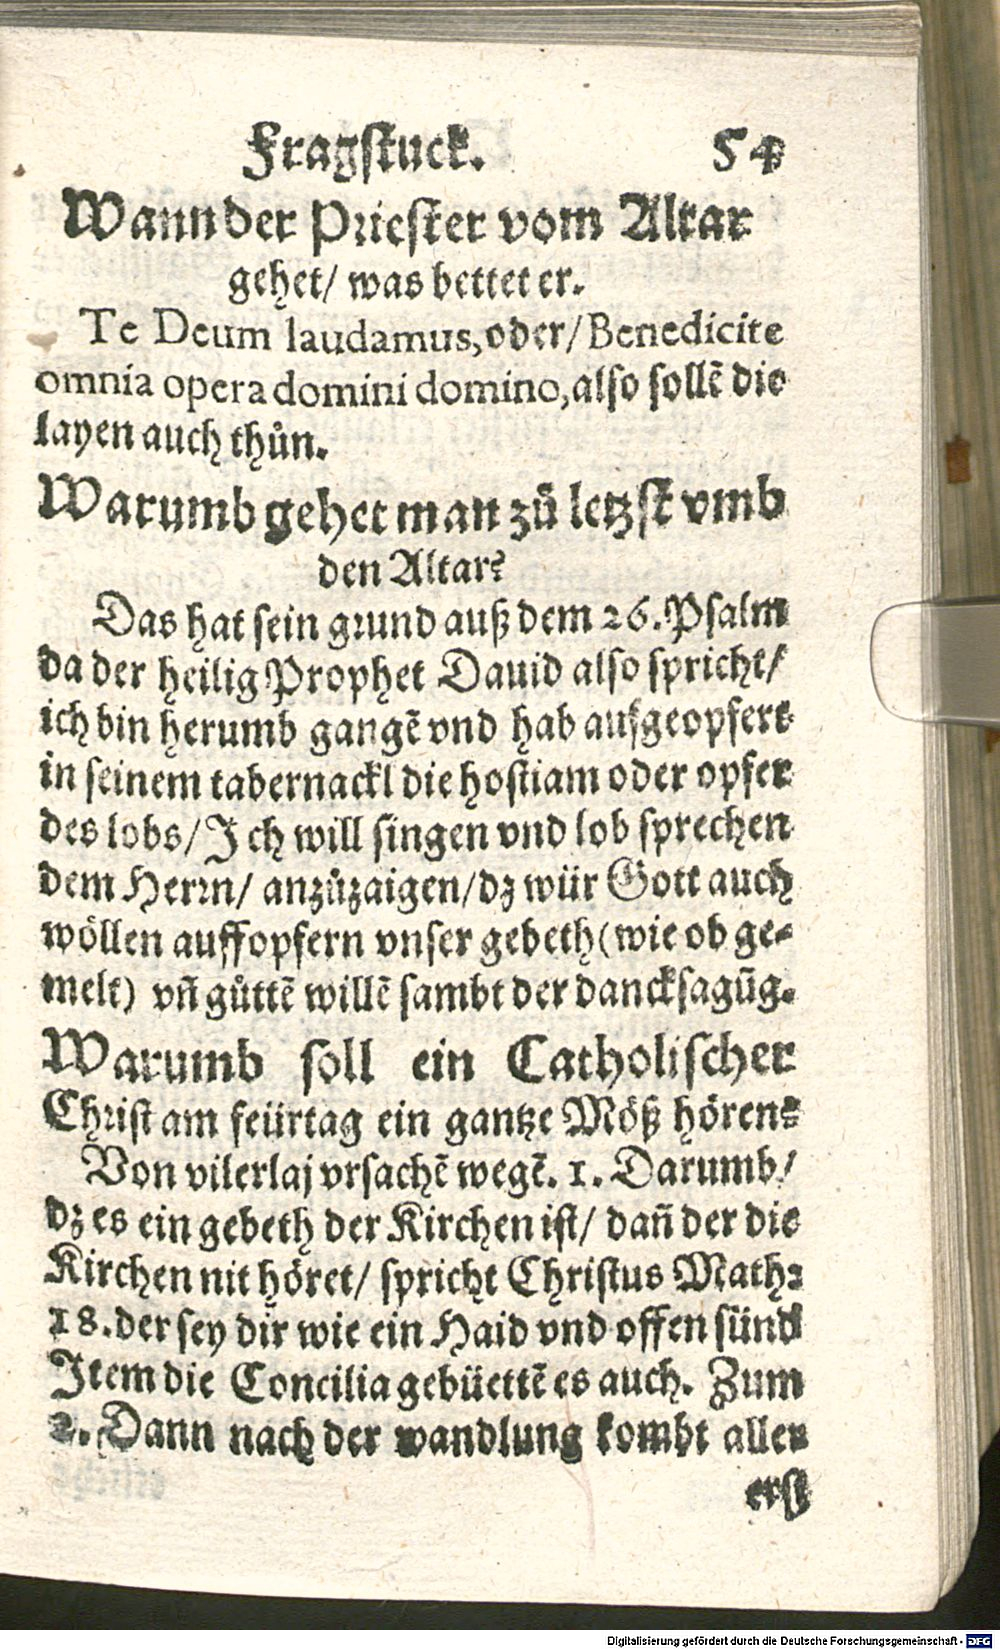 Fragstuck. 54
Wann der Priester vom Altar
gehet/ was bettet er.
Te Deum laudamus, oder/ Benedicite
omnia opera domini domino, also sollẽ die
layen auch thůn.
Warumb gehet man zů letzst vmb
den Altar?
Das hat sein grund auß dem 26. Psalm
da der heilig Prophet Dauid also spricht/
ich bin herumb gangẽ vnd hab aufgeopfert
in seinem tabernackl die hostiam oder opfer
des lobs/ Ich will singen vnd lob sprechen
dem Herrn/ anzůzaigen/ dz wür Gott auch
wöllen auffopfern vnser gebeth (wie ob ge-
melt) vñ gůttẽ willẽ sambt der dancksagũg.
Warumb soll ein Catholischer
Christ am feürtag ein gantze Möß hören?
Von vilerlaj vrsachẽ wegẽ. 1. Darumb/
dz es ein gebeth der Kirchen ist/ dañ der die
Kirchen nit höret/ spricht Christus Math:
18. der sey dir wie ein Haid vnd offen sündl
Item die Concilia gebüettẽ es auch. Zum
2. Dann nach der wandlung kombt aller
erst
Digitalisierung gefördert durch die Deutsche Forschungsgemeinschaft - DFG